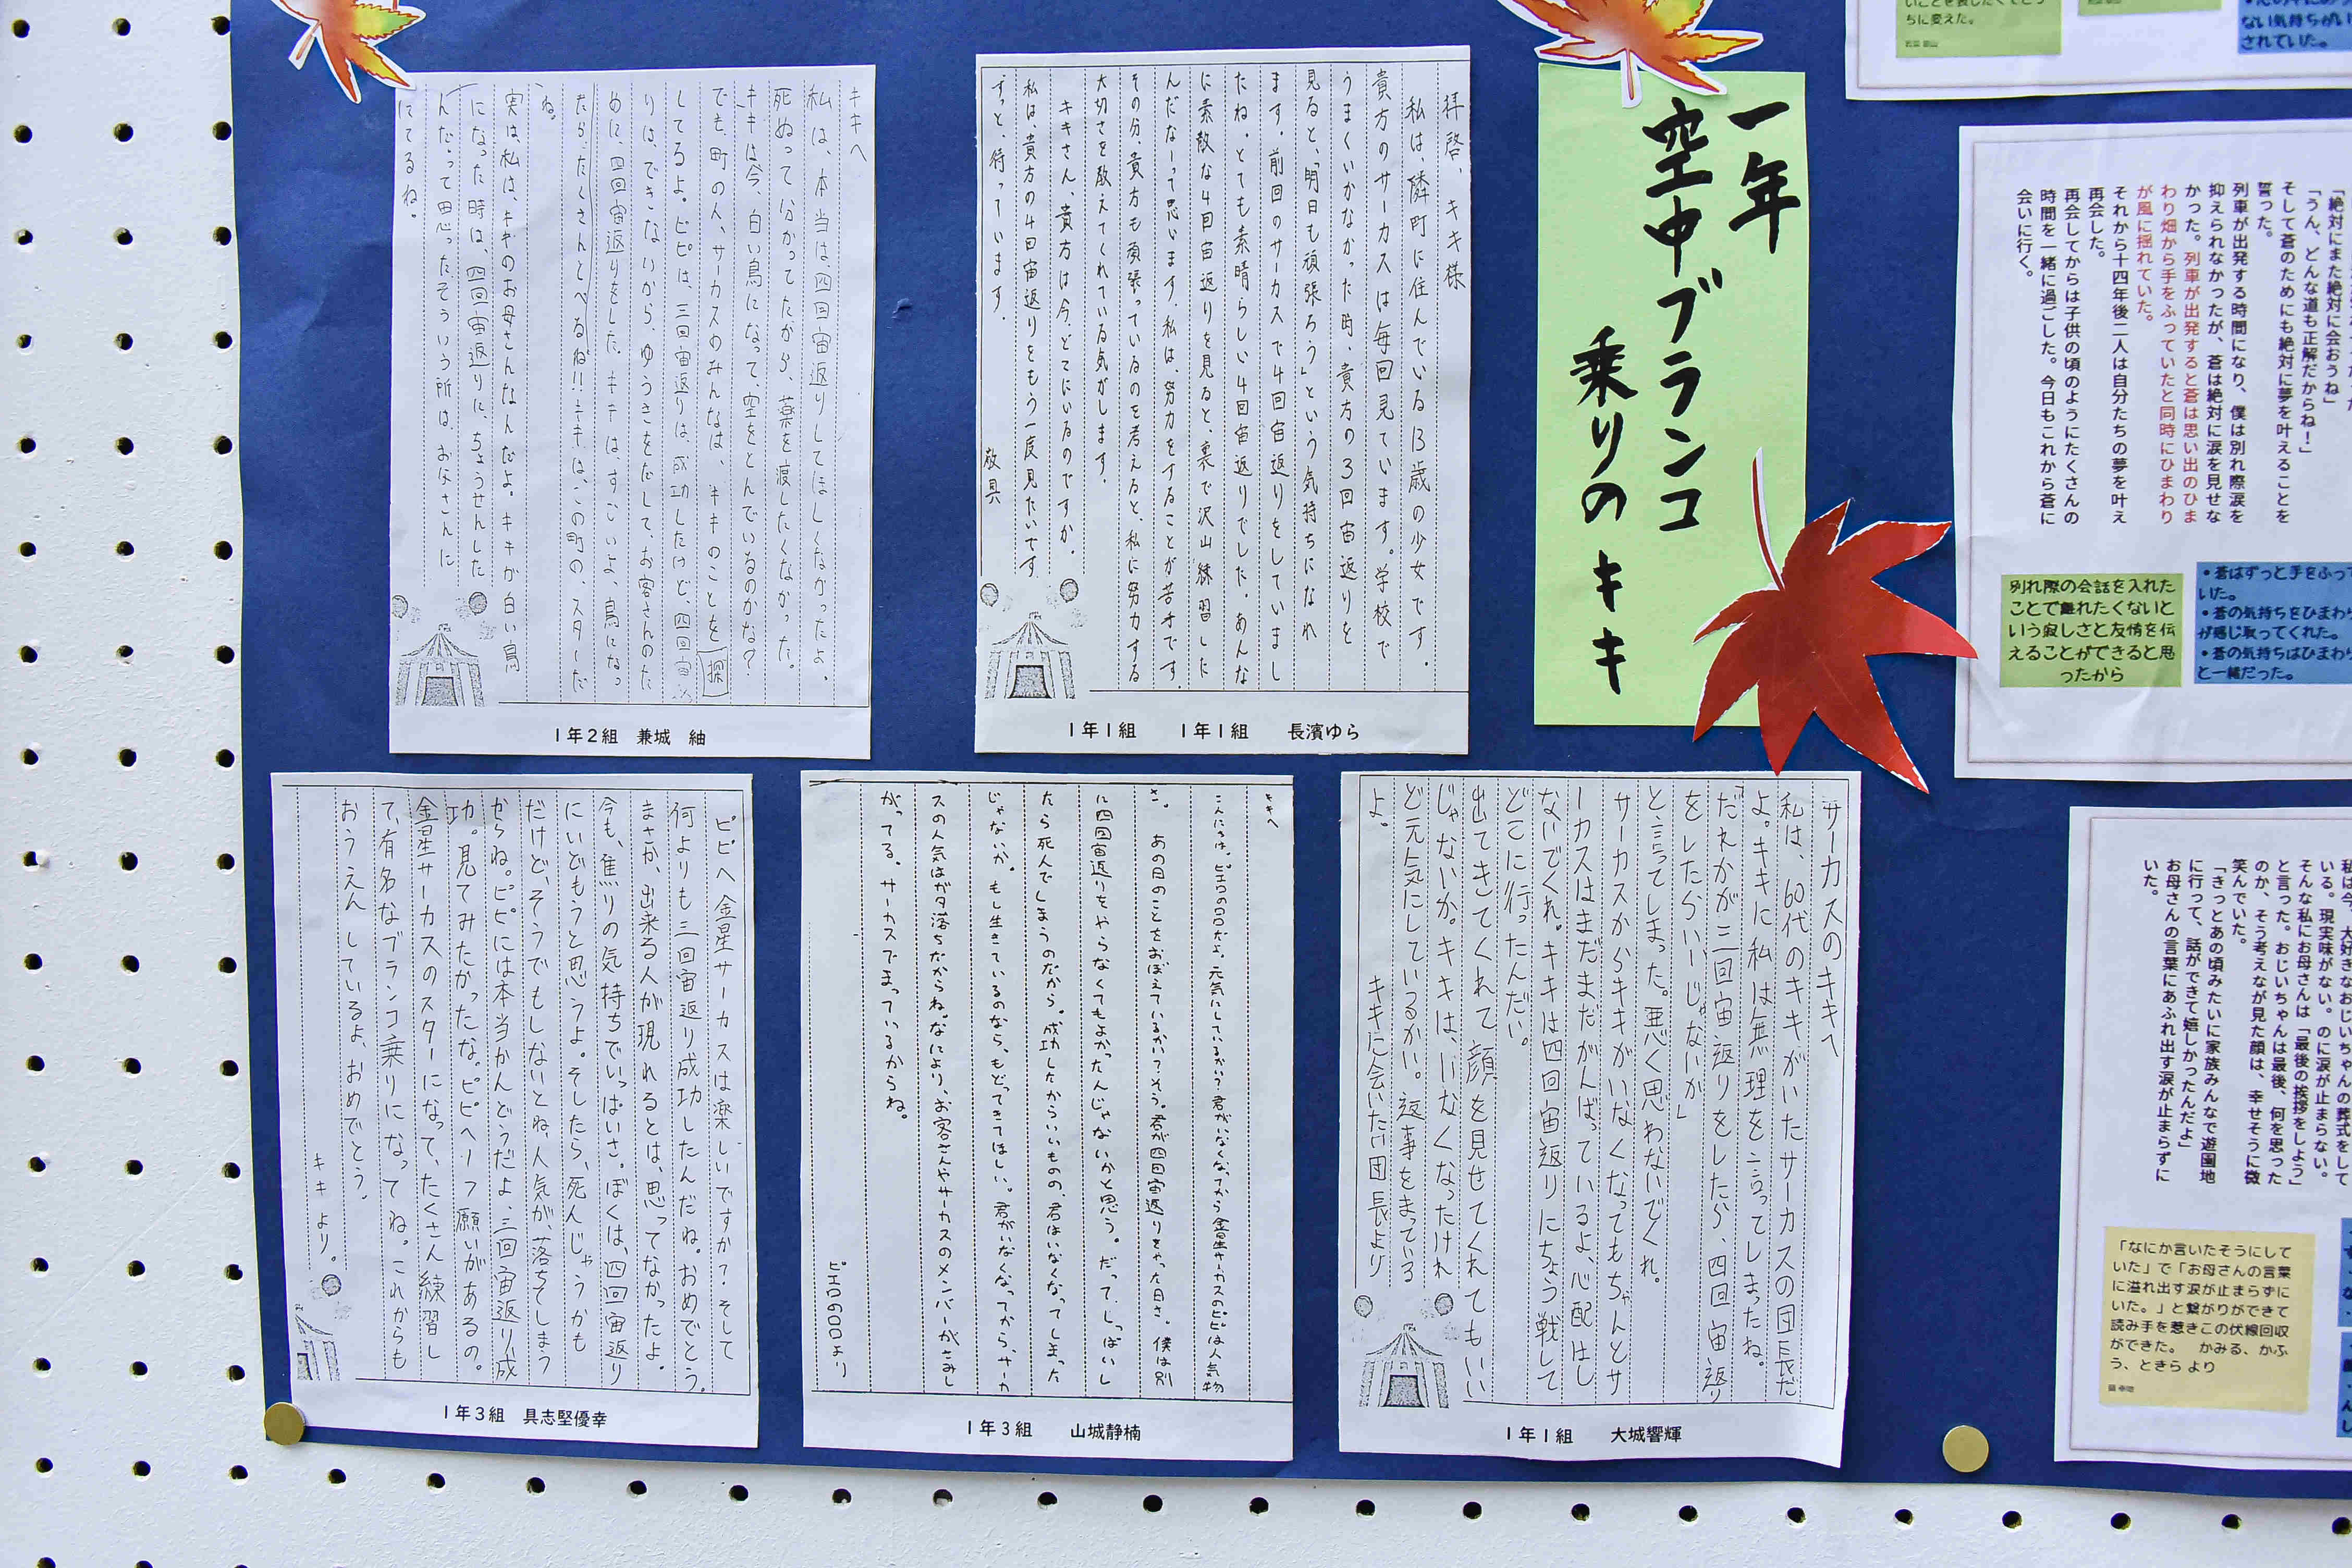 一年
空中ブランコ
乗りのキキ
拝啓、キキ様
私は、隣町に住んでいる13歳の少女です。
貴方のサーカスは毎回見ています。学校で
うまくいかなかった時、貴方の3回宙返りを
見ると、「明日も頑張ろう」という気持ちになれ
ます。前回のサーカスで4回宙返りをしていまし
たね。とても素晴らしい4回宙返りでした。あんな
に素敵な4回宙返りを見ると、裏で沢山練習した
んだなーって思います。私は、努力をすることが苦手です。
その分、貴方も頑張っているのを考えると、私に努力する
大切さを教えてくれている気がします。
キキさん、貴方は今、どこにいるのですか。
私は、貴方の4回宙返りをもう一度見たいです
ずっと、待っています。
敬具
1年1組 1年1組 長濱ゆら
キキへ
私は、本当は四回宙返りしてほしくなかったよ、
死ぬって分かってたから、薬を渡したくなかった。
キキは今、白い鳥になって、空をとんでいるのかな?
でも、町の人、サーカスのみんなは、キキのことを探
してるよ。ピピは、三回宙返りは、成功したけど、四回宙
りは、できないから、ゆうきをだして、お客さんのた
めに、四回宙返りをした。キキは、すごいよ、鳥になっ
たら、たくさんとべるね!!キキは、この町の、スターだ
ね。
実は、私は、キキのお母さんなんだよ。キキが白い鳥
になった時は、四回宙返りに、ちょうせんした
んだ。って思ったそういう所は、お父さんに
にてるね。
1年2組 兼城 紬
サーカスのキキへ
私は、60代のキキがいたサーカスの団長だ
よ。キキに私は無理を言ってしまったね。
「だれかが三回宙返りをしたら、四回宙返り
をしたらいいじゃないか」
と、言ってしまった。悪く思わないでくれ。
サーカスからキキがいなくなってもちゃんとサ
ーカスはまだまだがんばっているよ、心配はし
ないでくれ。キキは四回宙返りにちょう戦して
どこに行ったんだい。
出てきてくれて顔を見せてくれてもいい
じゃないか。キキは、いなくなったけれ
ど元気にしているかい。返事をまっている
よ。
キキに会いたい団長より
1年1組 大城響輝
キキへ
こんにちは、ピエロのロロだよ。元気にしているかい?君がいなくなってから金星サーカスのピピは人気物
さ。 あの日のことをおぼえているかい?そう。君が四回宙返りをやった日さ。僕は別
に四回宙返りをやらなくてもよかったんじゃないかと思う。だって、しっぱいし
たら死んでしまうのだから。成功したからいいものの、君はいなくなってしまった
じゃないか。もし生きているのなら、もどってきてほしい。君がいなくなってから、サーカ
スの人気はガタ落ちだからね。なにより、お客さんやサーカスのメンバーがさみし
がってる。サーカスでまっているからね。
ピエロのロロより
1年3組 山城静楠
ピピへ 金星サーカスは楽しいですか?そして
何よりも三回宙返り成功したんだね。おめでとう。
まさか、出来る人が現れるとは、思ってなかったよ。
今も、焦りの気持ちでいっぱいさ。ぼくは、四回宙返り
にいどもうと思うよ。そしたら、死んじゃうかも
だけど、そうでもしないとね、人気が、落ちてしまう
からね。ピピには本当かんどうだよ、三回宙返り成
功。見てみたかったな。ピピへ1つ願いがあるの。
金星サーカスのスターになって、たくさん練習し
て、有名なブランコ乗りになってね。これからも
おうえんしているよ、おめでとう。
キキより。
1年3組 具志堅優幸
ちに変えた。
ない気持ちがい
されていた。
「絶対にまた絶対に会おうね」
「うん、どんな道も正解だからね!」
そして蒼のためにも絶対に夢を叶えることを
誓った。
列車が出発する時間になり、僕は別れ際涙を
抑えられなかったが、蒼は絶対に涙を見せな
かった。列車が出発すると蒼は思い出のひま
わり畑から手をふっていたと同時にひまわり
が風に揺れていた。
それから十四年後二人は自分たちの夢を叶え
再会した。
再会してからは子供の頃のようにたくさんの
時間を一緒に過ごした。今日もこれから蒼に
会いに行く。
別れ際の会話を入れた
ことで離れたくないと
いう寂しさと友情を伝
えることができると思
ったから
・蒼はずっと手をふって
いた。
・蒼の気持ちをひまわり
が感じ取ってくれた。
・蒼の気持ちはひまわり
と一緒だった。
私は今、大好きなおじいちゃんの葬式をして
いる。現実味がない。のに涙が止まらない。
そんな私にお母さんは「最後の挨拶をしよう」
と言った。おじいちゃんは最後、何を思った
のか、そう考えなが見た顔は、幸せそうに微
笑んでいた。
「きっとあの頃みたいに家族みんなで遊園地
に行って、話ができて嬉しかったんだよ」
お母さんの言葉にあふれ出す涙が止まらずに
いた。
「なにか言いたそうにして
いた」で「お母さんの言葉
に溢れ出す涙が止まらずに
いた。」と繋がりができて
読み手を惹きこの伏線回収
ができた。 かみる、かふ
う、ときら より